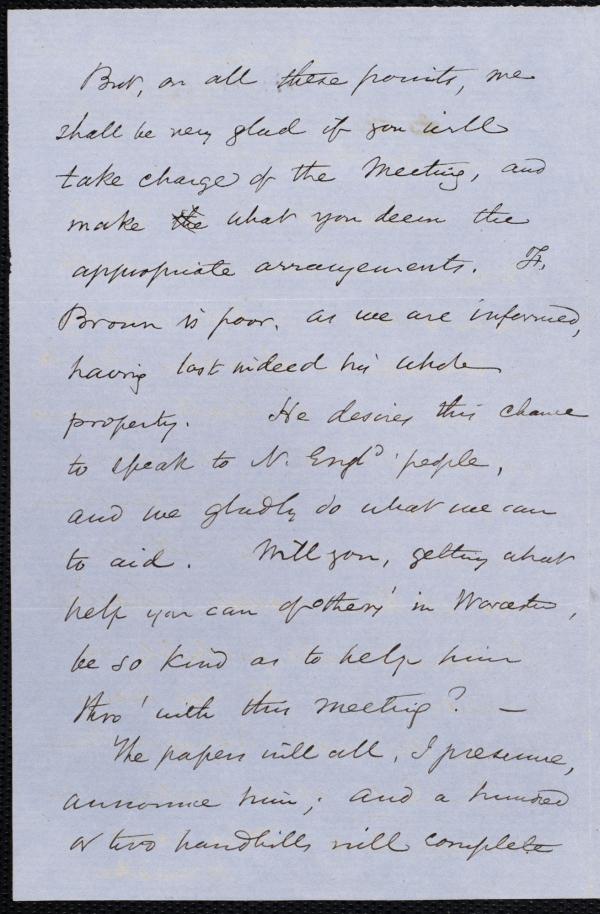 But, on all these points, we
shall be very glad if you will
take charge of the Meeting, and
make the what you deem the
appropriate arrangements.
Brown is poor. as we are informed,
having lost indeed his whole
property. He desires this chance
to speak to N. Engd people,
and we gladly do what we can
to aid. Will you, getting what
help you can of others' in Worcester,
be so kind as to help him
thro' with this meeting? —
The papers will all, I presume,
announce him; and a hundred
or two handbills will complete